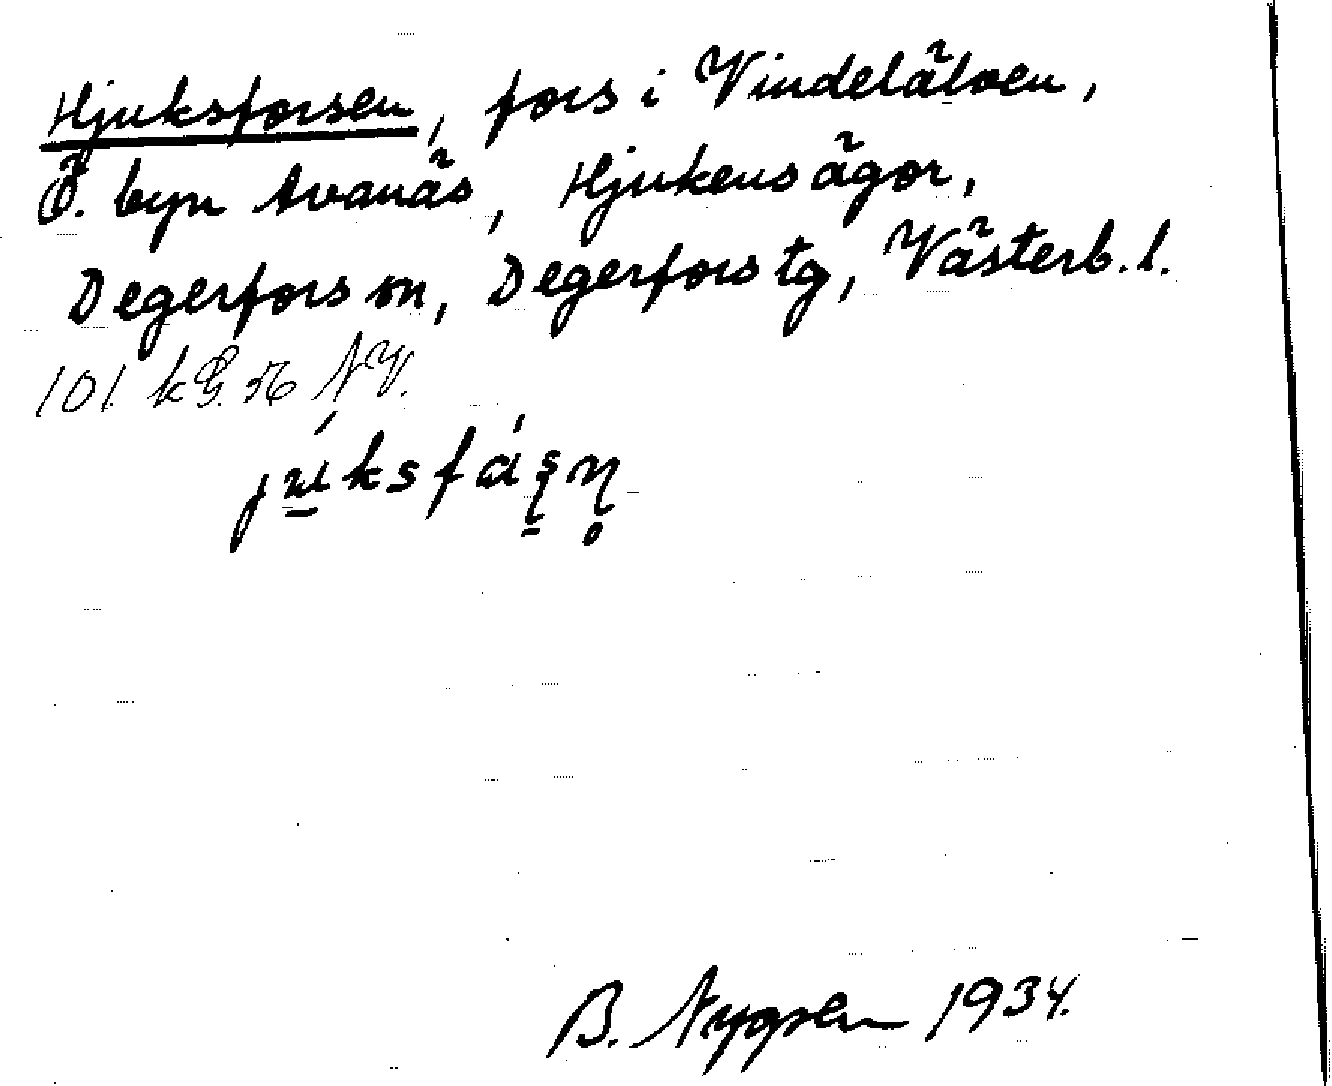 Hjuksforsen, fors i Vindelälven,
Ö. byn Avanäs, Hjukens ägor,
Degerfors sn, Degerfors tg, Västerb. l.
101. kG. 56 NV.
B. Nygren 1934.